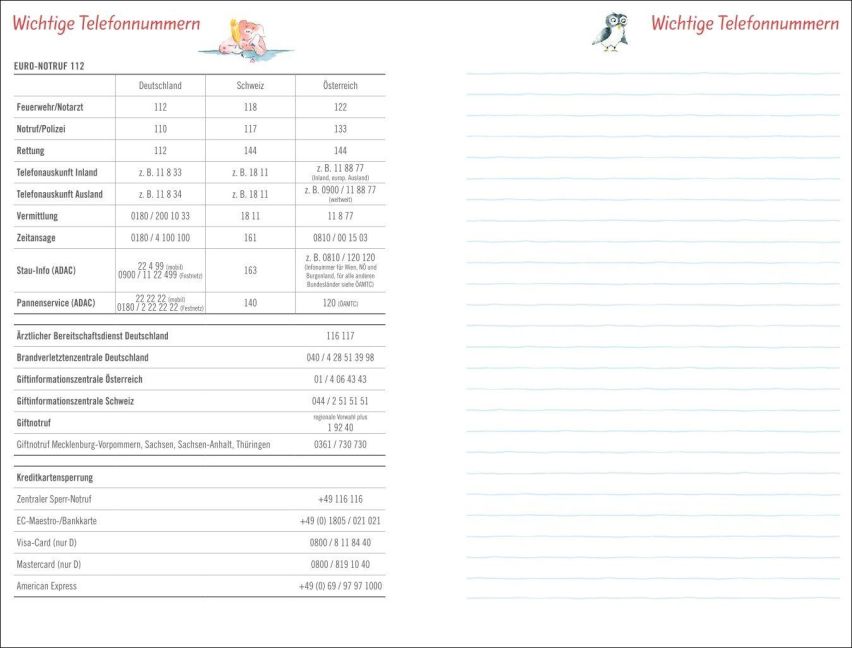 Wichtige Telefonnummern
EURO-NOTRUF 112
Deutschland Schweiz Österreich
Feuerwehr/Notarzt 112 118 122
Notruf/Polizei 110 117 133
Rettung 112 144 144
Telefonauskunft Inland z. B. 11 8 33 z. B. 18 11 z. B. 11 88 77
(Inland, europ. Ausland)
Telefonauskunft Ausland z. B. 11 8 34 z. B. 18 11 z. B. 0900 / 11 88 77
(weltweit)
Vermittlung 0180 / 200 10 33 18 11 11 8 77
Zeitansage 0180 / 4 100 100 161 0810 / 00 15 03
Stau-Info (ADAC) 22 4 99 (mobil)
0900 / 11 22 499 (Festnetz) 163 z. B. 0810 / 120 120
(Infonummer für Wien, NÖ und
Burgenland, für alle anderen
Bundesländer siehe ÖAMTC)
Pannenservice (ADAC) 22 22 22 (mobil)
0180 / 2 22 22 22 (Festnetz) 140 120 (ÖAMTC)
Ärztlicher Bereitschaftsdienst Deutschland 116 117
Brandverletztenzentrale Deutschland 040 / 4 28 51 39 98
Giftinformationszentrale Österreich 01 / 4 06 43 43
Giftinformationszentrale Schweiz 044 / 2 51 51 51
Giftnotruf regionale Vorwahl plus
1 92 40
Giftnotruf Mecklenburg-Vorpommern, Sachsen, Sachsen-Anhalt, Thüringen 0361 / 730 730
Kreditkartensperrung
Zentraler Sperr-Notruf +49 116 116
EC-Maestro-/Bankkarte +49 (0) 1805 / 021 021
Visa-Card (nur D) 0800 / 8 11 84 40
Mastercard (nur D) 0800 / 819 10 40
American Express +49 (0) 69 / 97 97 1000
Wichtige Telefonnummern